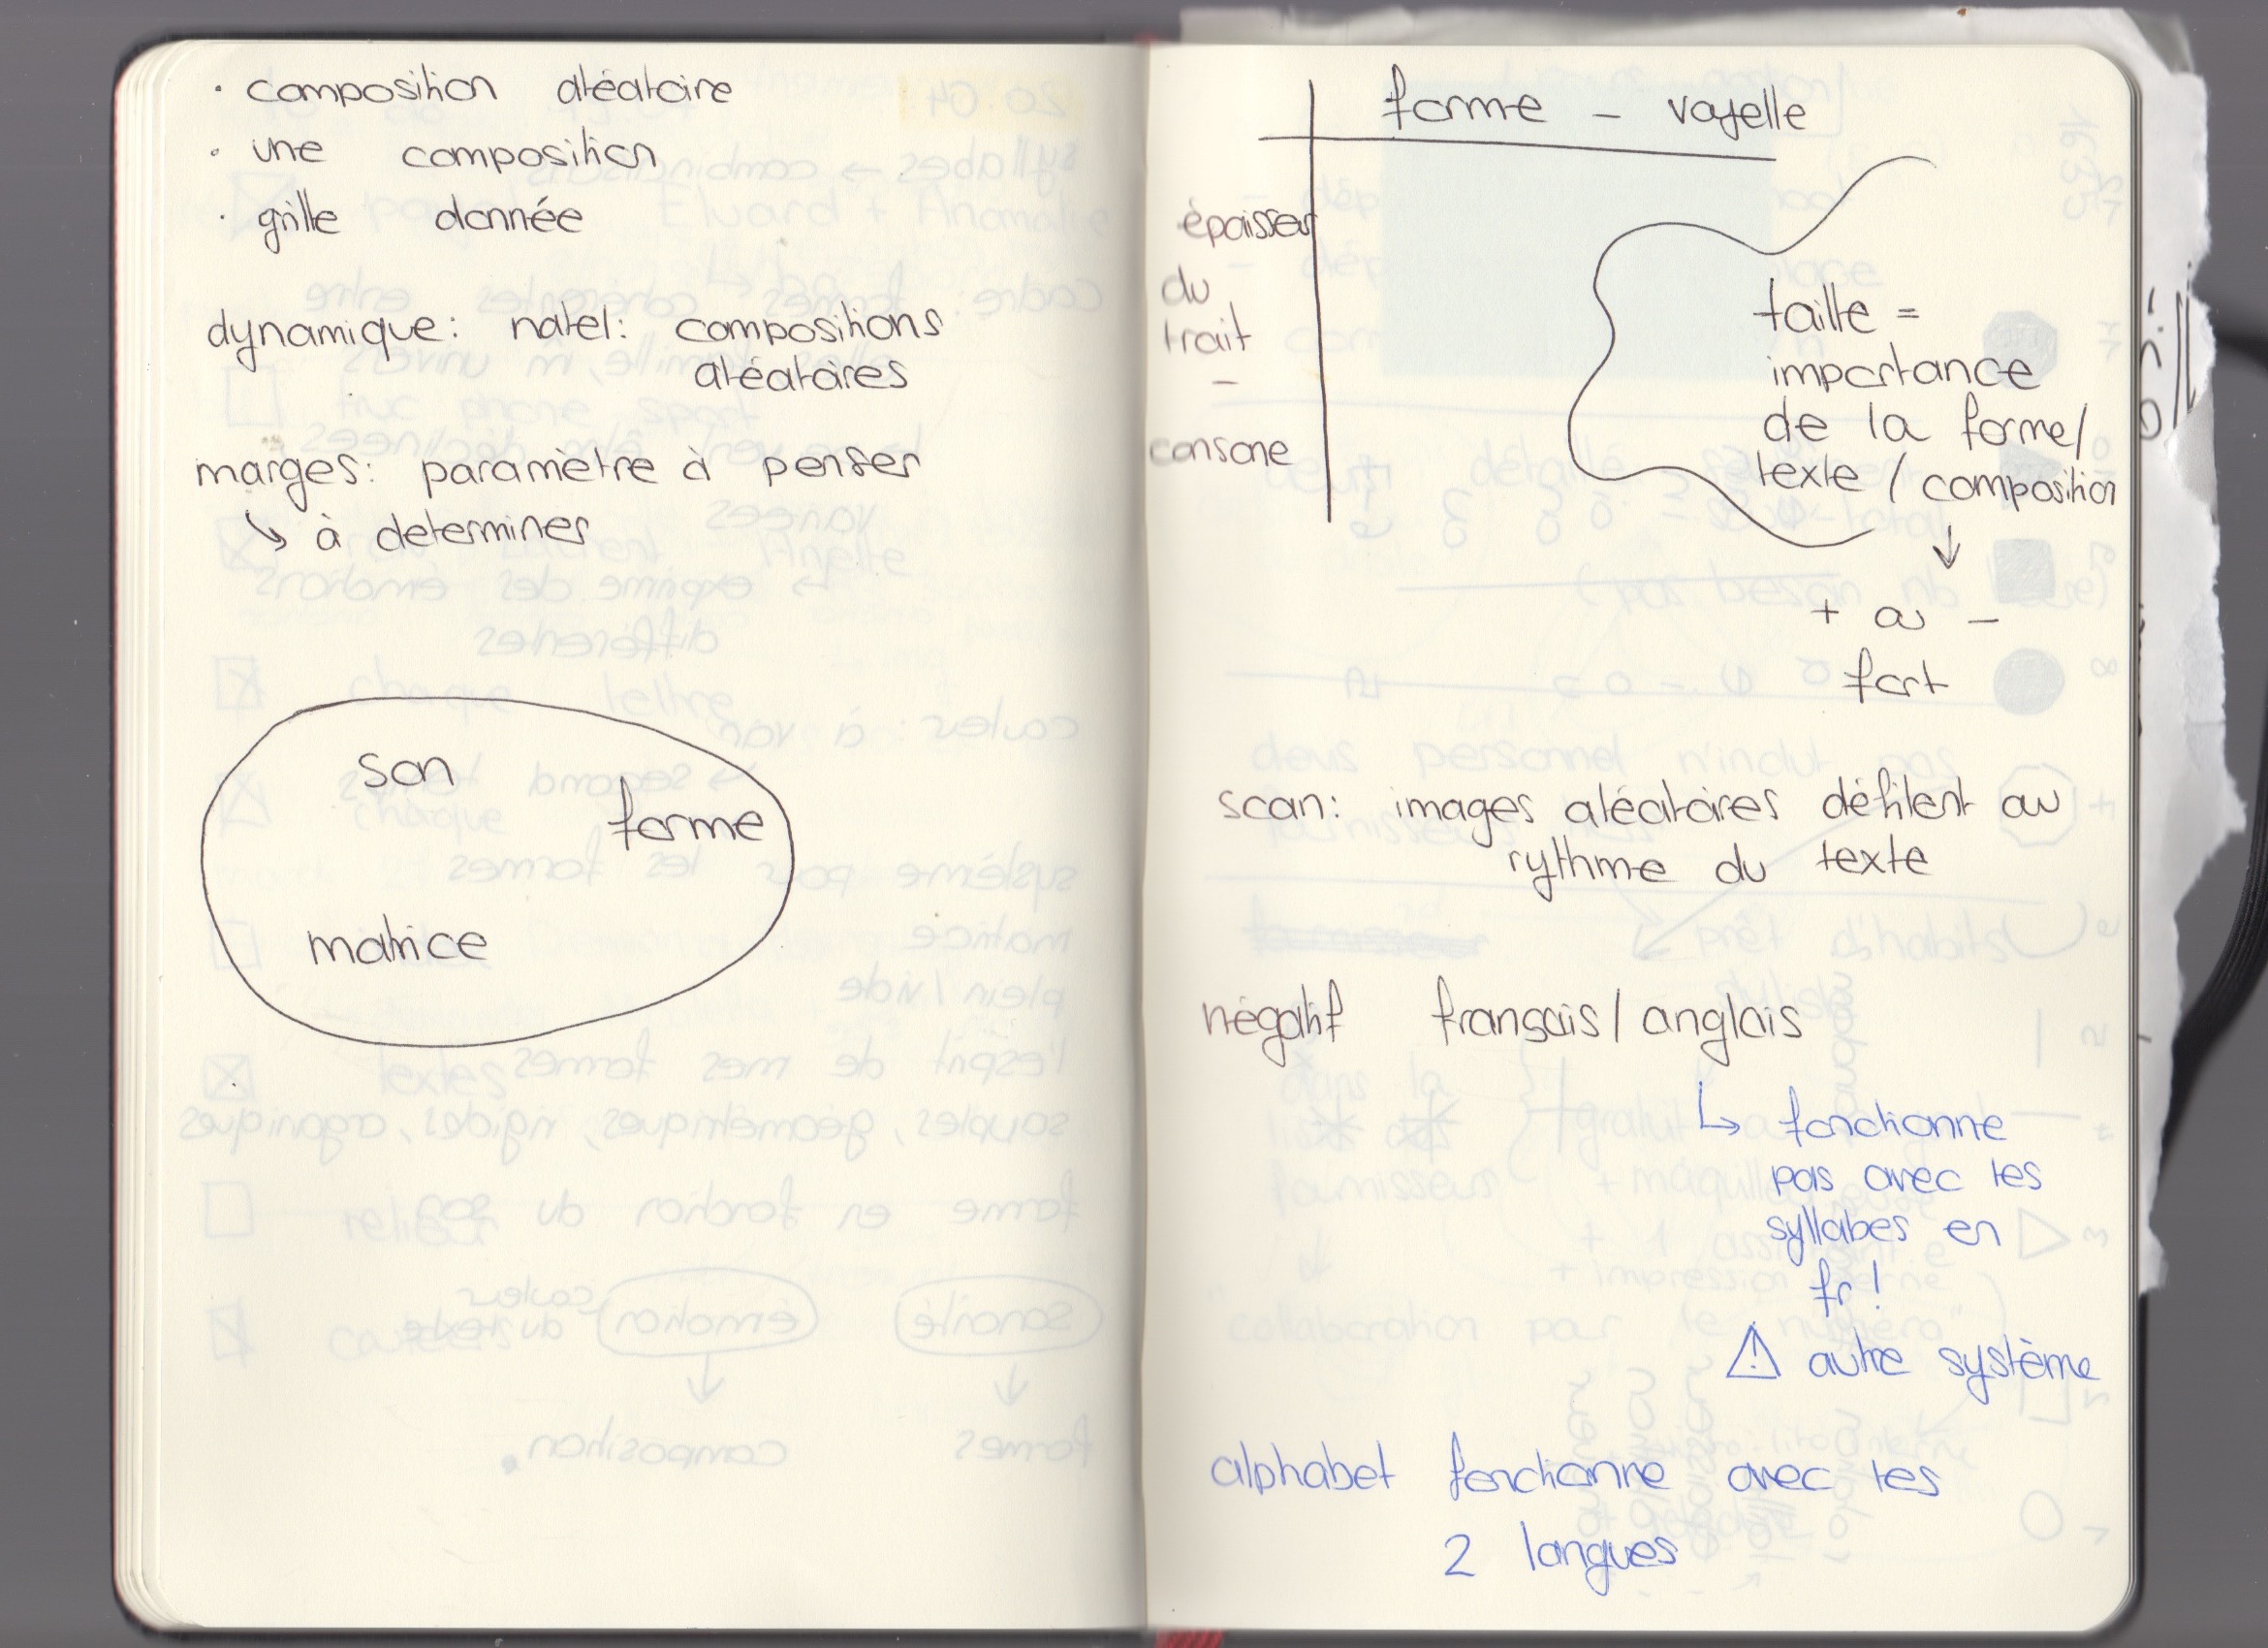 · composition aléatoire
· une composition
· grille donnée
dynamique: natel: compositions
aléatoires
marges: paramètre à penser
↳ à determiner
son
forme
matrice
forme - voyelle
épaisseur
du
trait
-
consone
taille =
importance
de la forme/
texte / composition
↓
+ ou -
fort
scan: images aléatoires défilent au
rythme du texte
négatif français/anglais
↳ fonctionne
pas avec les
syllabes en
fr!
⚠ autre système
alphabet fonctionne avec les
2 langues